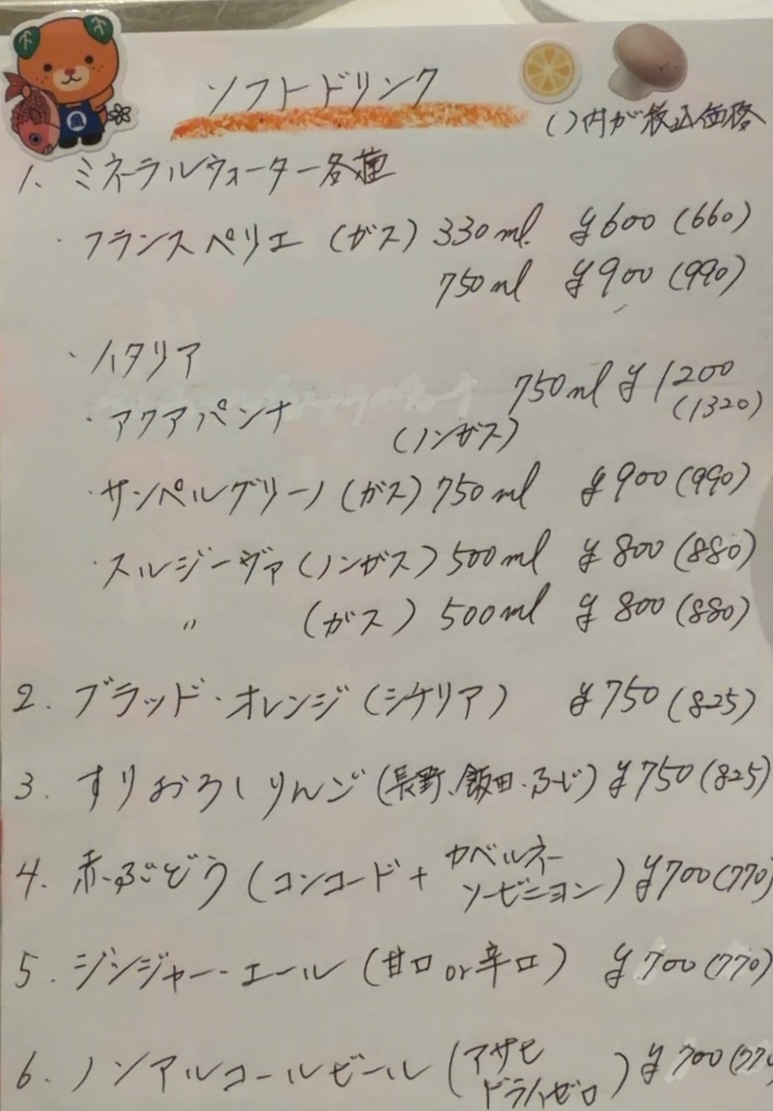 ソフトドリンク
()内が税込価格
1. ミネラルウォーター各種
・フランスペリエ (ガス) 330ml. ¥600 (660)
750ml ¥900 (990)
・イタリア
・アクアパンナ (ノンガス) 750ml ¥1200 (1320)
・サンペルグリーノ (ガス) 750ml ¥900 (990)
・スルジーヴァ (ノンガス) 500ml ¥800 (880)
〃 (ガス) 500ml ¥800 (880)
2. ブラッド・オレンジ (シケリア) ¥750 (825)
3. すりおろしりんご (長野、飯田・ふじ) ¥750 (825)
4. 赤ぶどう (コンコード + カベルネーソービニヨン) ¥700 (770)
5. ジンジャー・エール (甘口 or 辛口) ¥700 (770)
6. ノンアルコールビール (アサヒドライゼロ) ¥700 (770